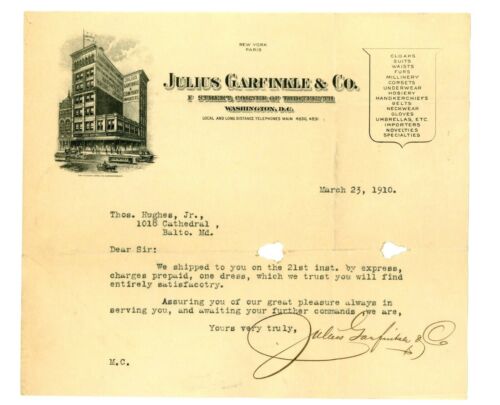 NEW YORK
PARIS
JULIUS GARFINKLE & CO.
F STREET, CORNER OF THIRTEENTH
WASHINGTON, D.C.
LOCAL AND LONG DISTANCE TELEPHONES MAIN 4830, 4831
CLOAKS
SUITS
WAISTS
FURS
MILLINERY
CORSETS
UNDERWEAR
HOSIERY
HANDKERCHIEFS
BELTS
NECKWEAR
GLOVES
UMBRELLAS, ETC.
IMPORTERS
NOVELTIES
SPECIALTIES
March 23, 1910.
Thos. Hughes, Jr.,
1018 Cathedral ,
Balto. Md.
Dear Sir:
We shipped to you on the 21st inst. by express,
charges prepaid, one dress, which we trust you will find
entirely satisfacotry.
Assuring you of our great pleasure always in
serving you, and awaiting your further commands we are,
Yours very truly,
Julius Garfinkle & Co
M.C.